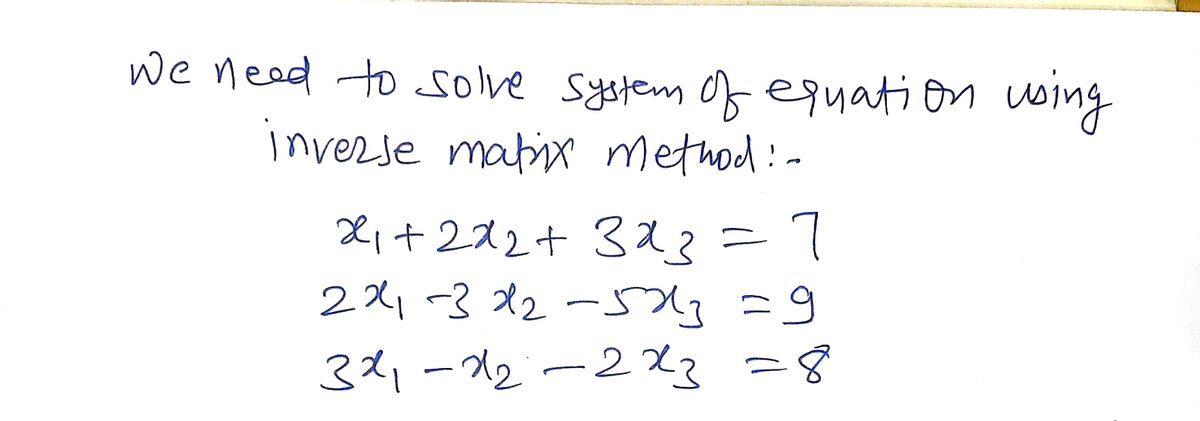 We need to solve system of equation using
inverse matrix method:-
x₁ + 2x₂ + 3x₃ = 7
2x₁ -3 x₂ -5x₃ = 9
3x₁ - x₂ - 2x₃ = 8